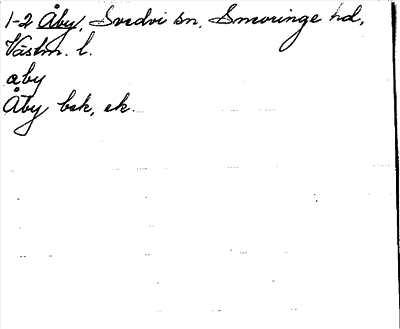 1-2 Åby, Svedvi sn, Snevringe hd,
Västm. l.
åby
Åby bsk, ek.